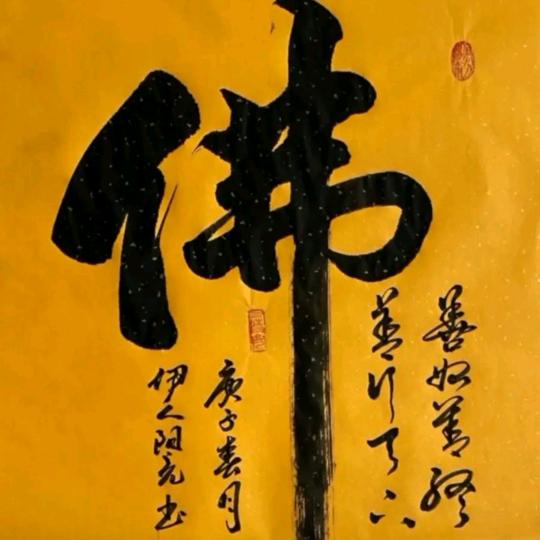 佛
善始善终
善行天下
庚子春月
伊人阳亮书